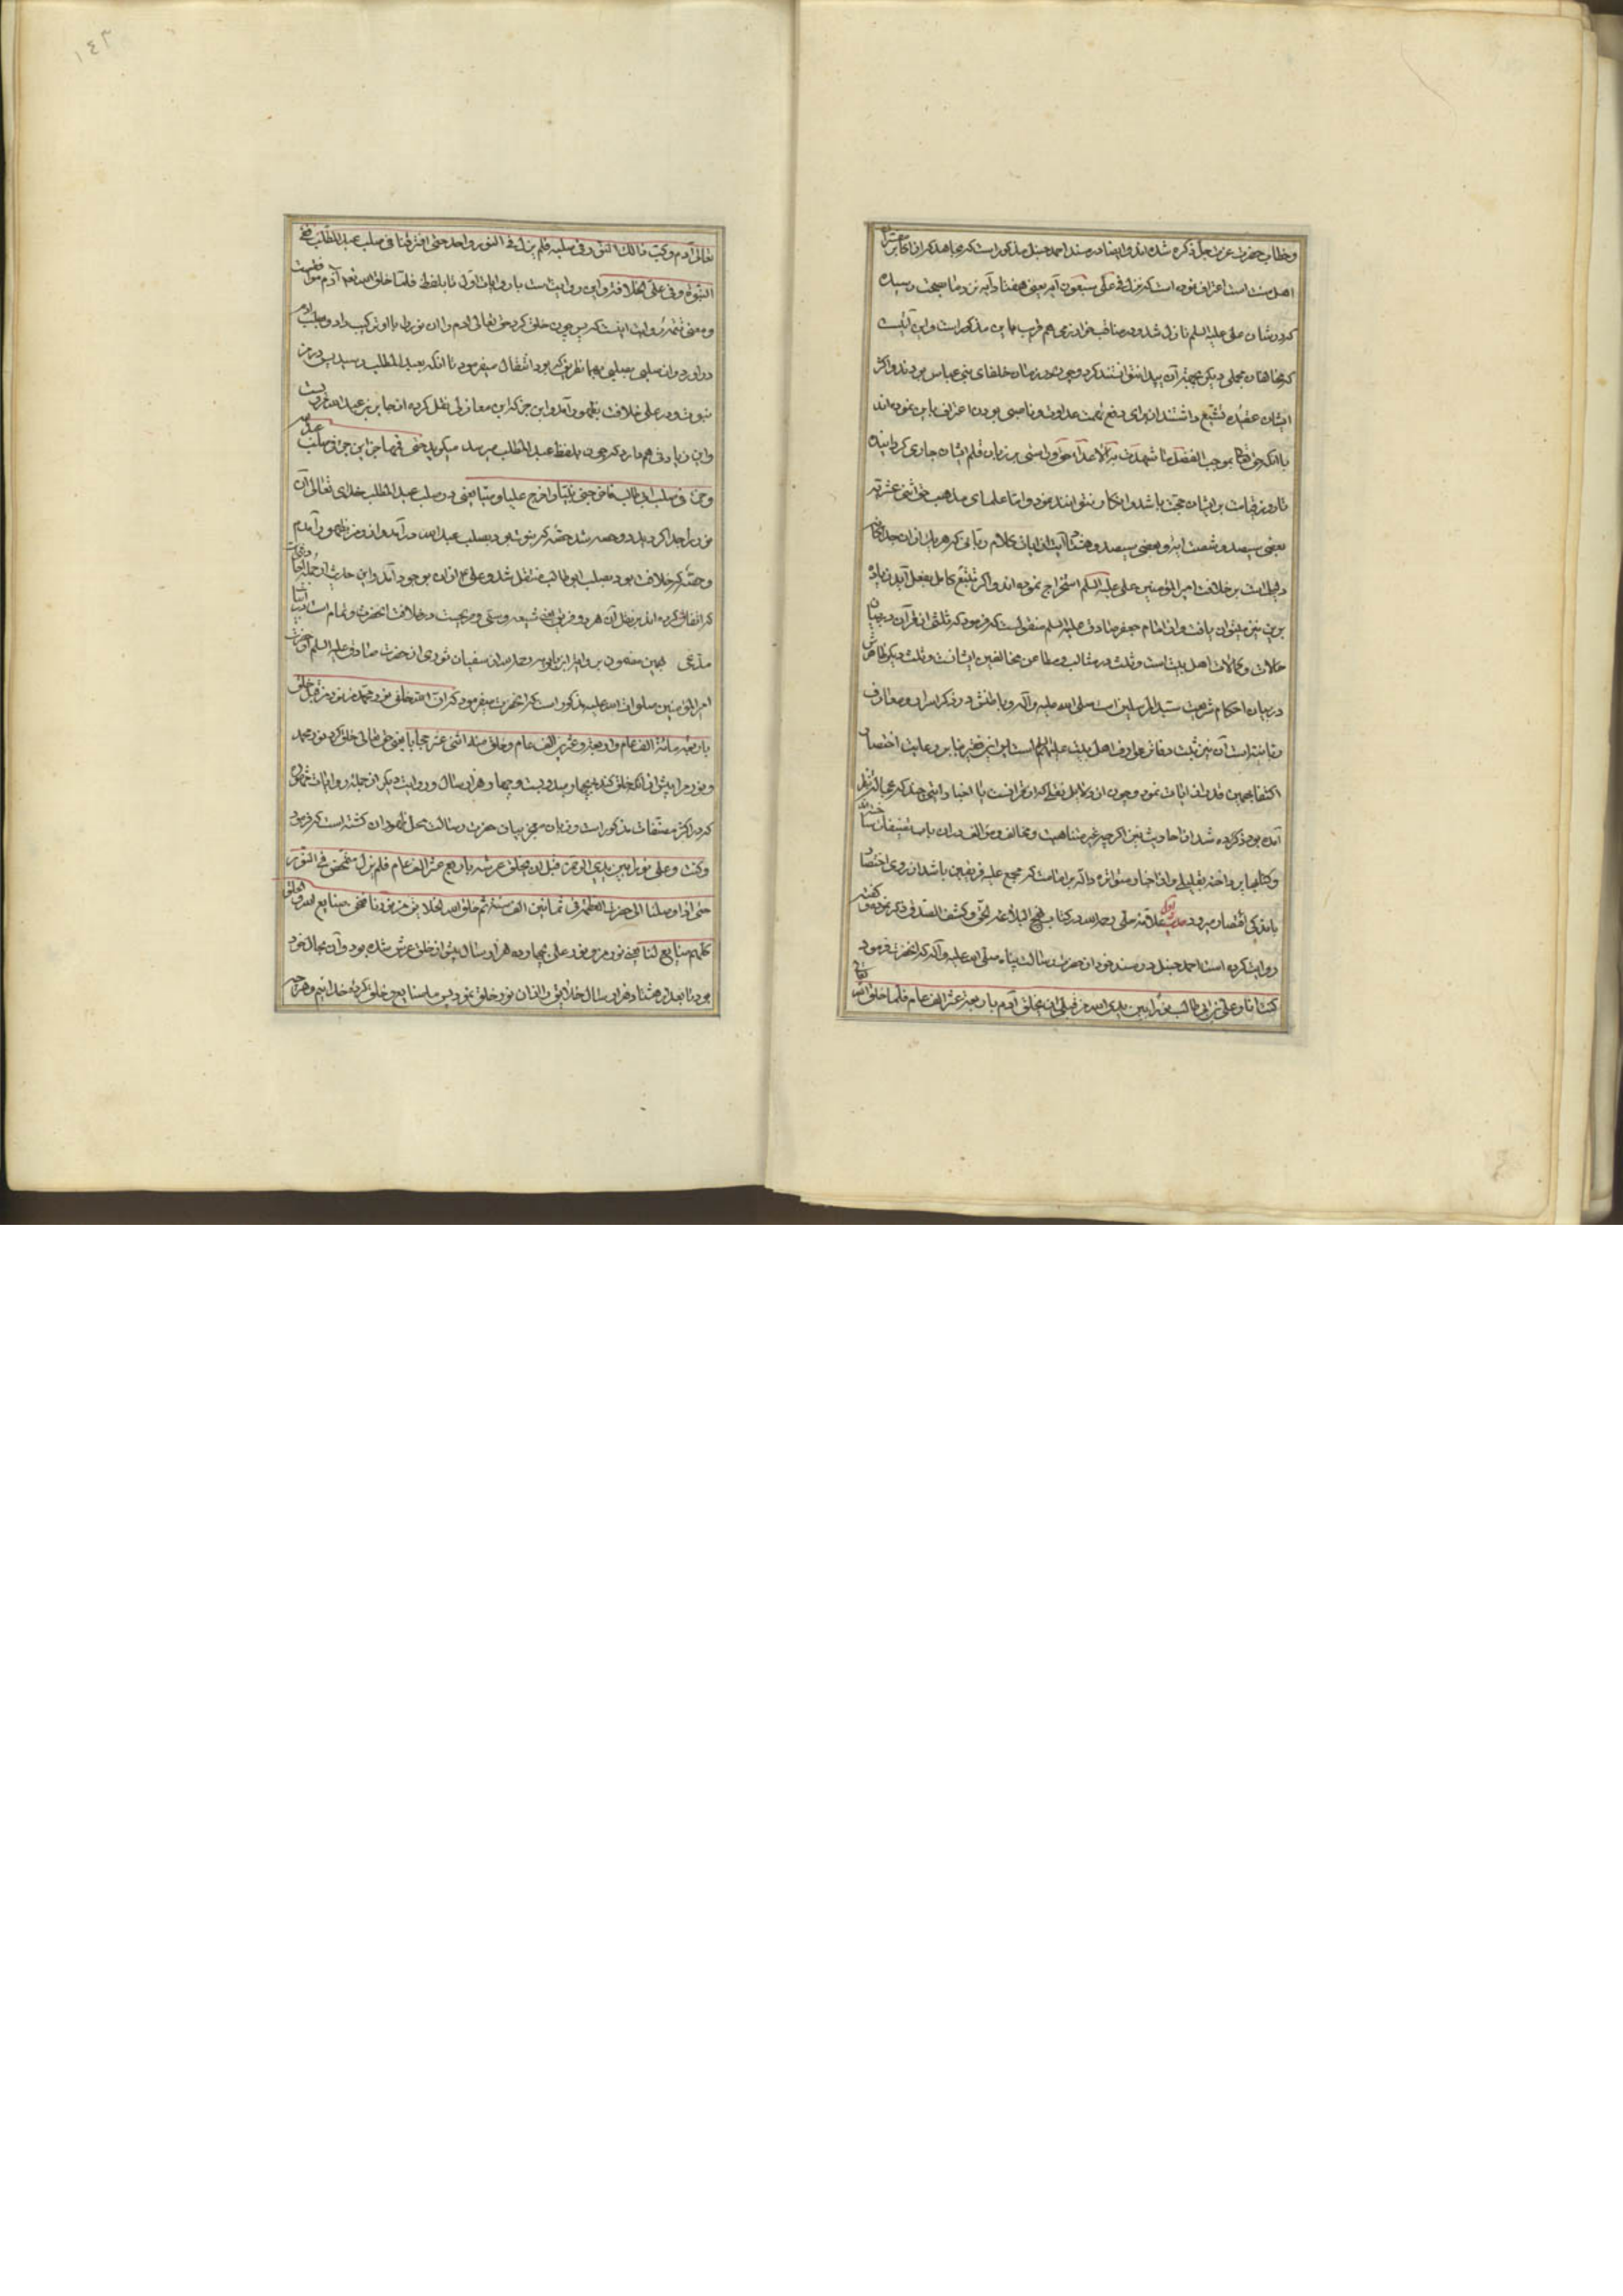 وخطاب حضرت عزت جل ذکره شده اند وایضا در مسند احمد حنبل مذکور است که مجاهد که از اکابر مفسران
اهل سنت است اعتراف نموده است که نزل فی علی سبعون آیه یعنی هفتاد آیه نزد ما بصحت رسیده
که در شان علی علیه السلم نازل شده ودر مناقب خوارزمی هم قریب باین مذکور است واین آیتیست
که مخالفان محملی دیگر بجهة آن پیدا نتوانستند کرد وچون در زمان خلفای بنی عباس بودند واکثر
ایشان عقیده تشیع داشتند از برای دفع تهمت عداوت وناصبی بودن اعتراف باین نموده اند
با آنکه حق تعالی بموجب الفضل ما شهدت به الاعداء حق وراستی بر زبان وقلم ایشان جاری گردانیده
تا روز قیامت بر ایشان حجت باشد وانکار نتوانند نمود واما علمای مذهب حق اثنی عشریه
بعضی سیصد وشصت آیه وبعضی سیصد وهفتاد آیت از آیات کلام ربانی که هر یک از آن جداگانه
دلیل است بر خلافت امیر المؤمنین علی علیه السلم استخراج نموده اند واگر تتبع کامل بفعل آید زیاده
برین نیز میتوان یافت واز امام جعفر صادق علیه السلم منقول است که فرمود که ثلثی از قرآن در بیان
حالات وکمالات اهل بیت است وثلث در مثالب ومطاعن مخالفین ایشانست وثلث دیگر ظاهرش
در بیان احکام شریعت سید المرسلین است صلی الله علیه وآله وباطنش در ذکر اسرار ومعارف
اکتفا بهمین قدر از آیات نمود وچون از دلایل نقلی که از قرآنست یا اخبار آنچه
آمده بود ذکر کرده شد از احادیث نیز اگر چه غیر متناهیست ومخالف ومؤالف در آن باب
وکتابها پرداخته بقلیلی از اخبار متواتره داله بر امامت که مجمع علیه فریقین باشد از روی اختصار
باندکی اقتصار میرود حدیث اول علامه حلی رحمه الله در کتاب نهج الحق وکشف الصدق ذکر نموده وگفته
روایت کرده است احمد حنبل در مسند خود از حضرت رسالت پناه صلی الله علیه وآله که آنحضرت فرمود
کنت انا وعلی بن ابی طالب نورا بین یدی الله من قبل ان یخلق آدم باربعة عشر الف عام فلما خلق الله
١٤٣
تعالی آدم رکب ذالک النور فی صلبه فلم یزل فی النور واحد حتی افترقنا فی صلب عبد المطلب ففی
النبوة وفی علی الخلافة واین روایت است با روایات اول تا بلفظ فلما خلق الله تعالی آدم
ومعنی تتمه روایت اینست که پس چون خلق کرد حق تعالی آدم را آن نور را با او ترکیب داد وبصلب آدم
در آورد واز صلبی بصلبی بهمان طریق که بود انتقال میفرمود تا آنکه بعبد المطلب رسید پس در من
نبوت ودر علی خلافت بظهور آمد واین حدیث را ابن مغازلی نقل کرده از جابر بن عبد الله
واین زیادتی هم دارد که چون بلفظ عبد المطلب میرسد میگوید حتی قسمها جزئین جزء فی صلب عبد الله
وجزء فی صلب ابی طالب فاخرجنی نبیا واخرج علیا وصیا یعنی در صلب عبد المطلب خدای تعالی آن
نور را جدا گردید دو حصه شد حصه که نبوت بود بصلب عبد الله در آمد واز او من بظهور آمدم
وحصه که خلافت بود بصلب ابی طالب منتقل شد وعلی از آن بوجود آمد واین حدیث از جمله
که اتفاق کرده اند بر نقل آن هر دو فریق یعنی شیعه وسنی وصریحست در خلافت آنحضرت وتمام است
مدعی همین مضمون بروایت ابن بابویه از سفیان ثوری از حضرت صادق علیه السلم از حضرت
امیر المؤمنین صلوات الله علیه مذکور است که آنحضرت میفرمود که ان الله خلق نور محمد من نوره قبل خلق
باربعة مائة الف عام واربعة وعشرین الف عام وخلق منه اثنی عشر حجابا یعنی حق تعالی خلق کرد نور محمد
که در اکثر مصنفات مذکور است وزبان معجز بیان حضرت رسالت محل ظهور آن گشته است که فرمود
وکنت وعلی نورا بین یدی الرحمن قبل ان یخلق عرشه باربع عشر الف عام فلم نزل نتمخض فی النور
حتی اذا وصلنا الی حضرت العظمة فی ثمانین الف سنة ثم خلق الله الخلایق من نورنا فنحن صنایع الله والخلق
کلهم صنایع لنا یعنی نور من ونور علی چهارده هزار سال پیش از خلق عرش شده بود وآن بحال خود
بود تا بعد از هشتاد هزار سال خلایق را از آن نور خلق نمود پس ما صنایع وخلق کرده خدائیم